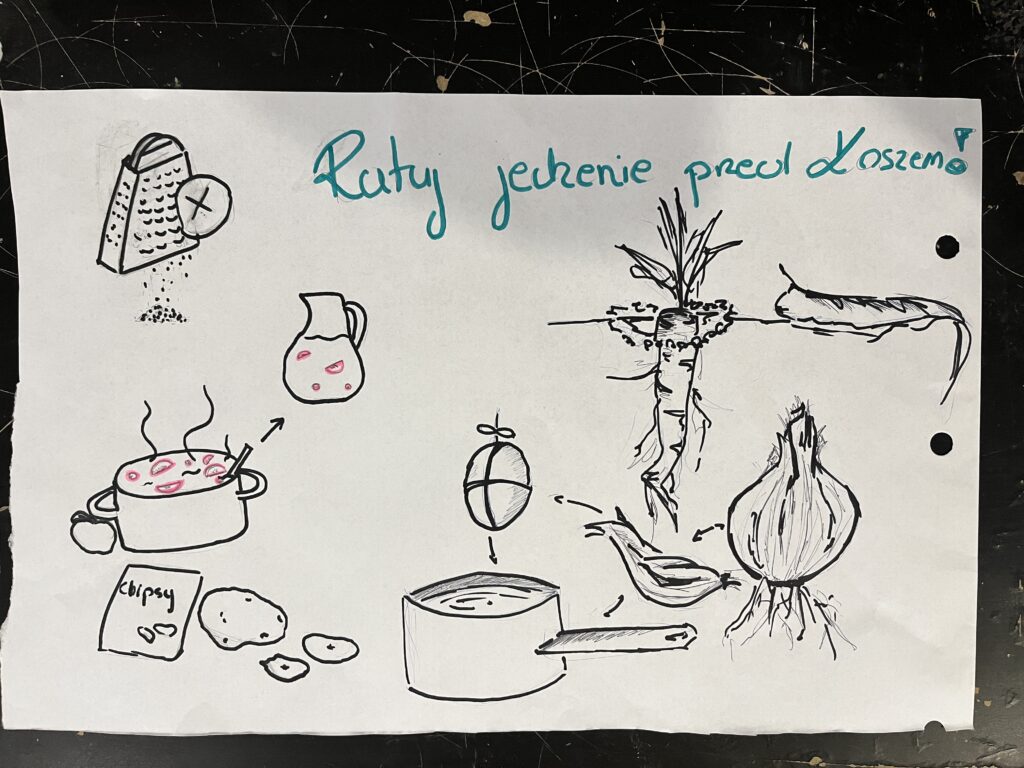 Ratuj jedzenie przed Koszem!
chipsy